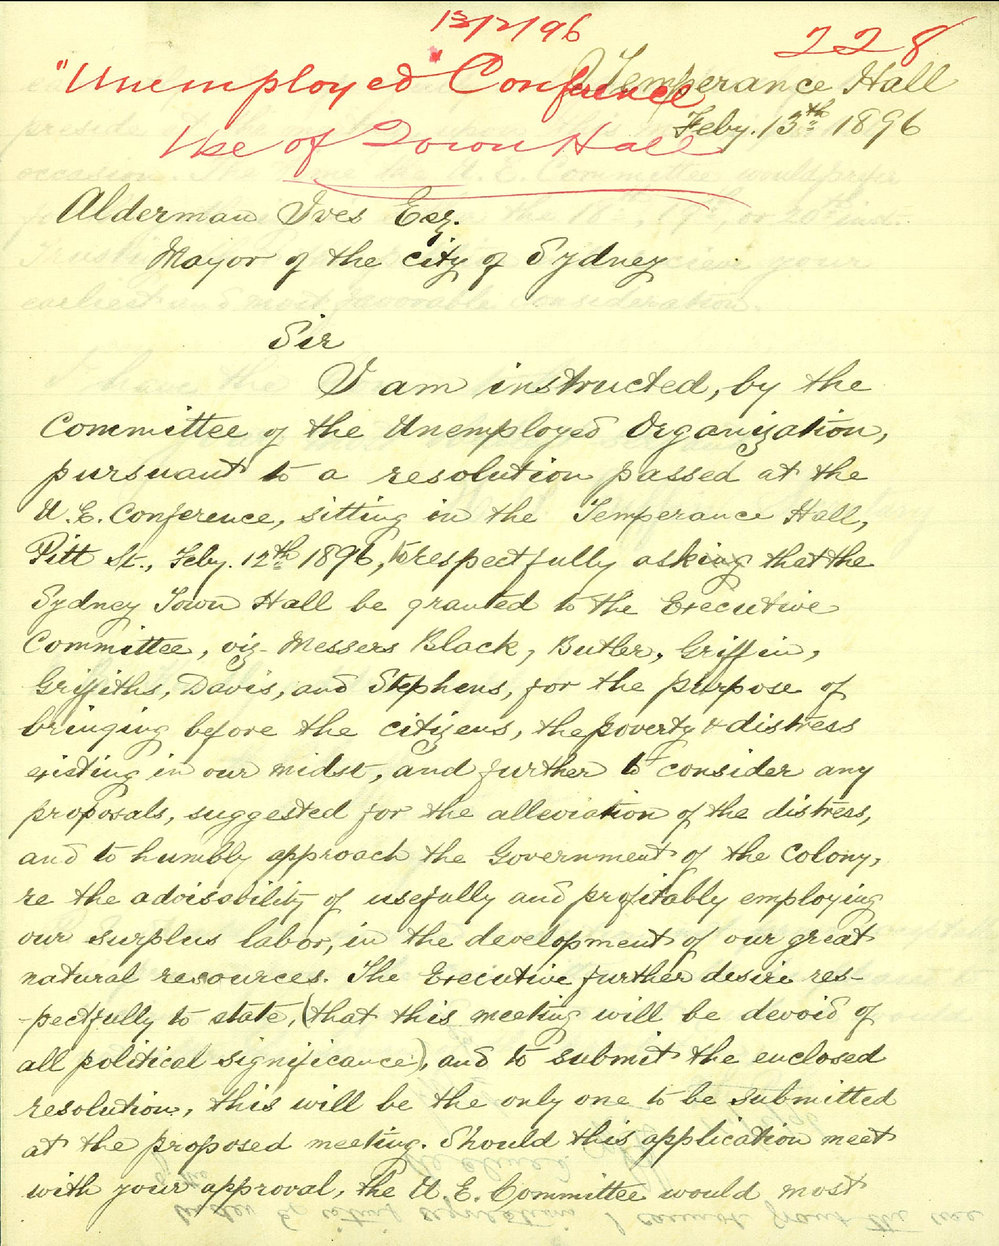 13/2/96
228
"Unemployed" Conference
Use of Town Hall
Temperance Hall
Feby. 13th 1896
Alderman Ives Esq.
Mayor of the city of Sydney
Sir
I am instructed, by the
Committee of the Unemployed Organization,
pursuant to a resolution passed at the
U.E. Conference, sitting in the Temperance Hall,
Pitt St., Feby. 12th 1896, to respectfully asking that the
Sydney Town Hall be granted to the Executive
Committee, viz- Messers Black, Butler, Griffin,
Griffiths, Davis, and Stephens, for the purpose of
bringing before the citizens, the poverty & distress
existing in our midst, and further to consider any
proposals, suggested for the alleviation of the distress,
and to humbly approach the Government of the Colony,
re the advisability of usefully and profitably employing
our surplus labor, in the development of our great
natural resources. The Executive further desire res-
-pectfully to state, (that this meeting will be devoid of
all political significance), and to submit the enclosed
resolution, this will be the only one to be submitted
at the proposed meeting. Should this application meet
with your approval, the U.E. Committee would most